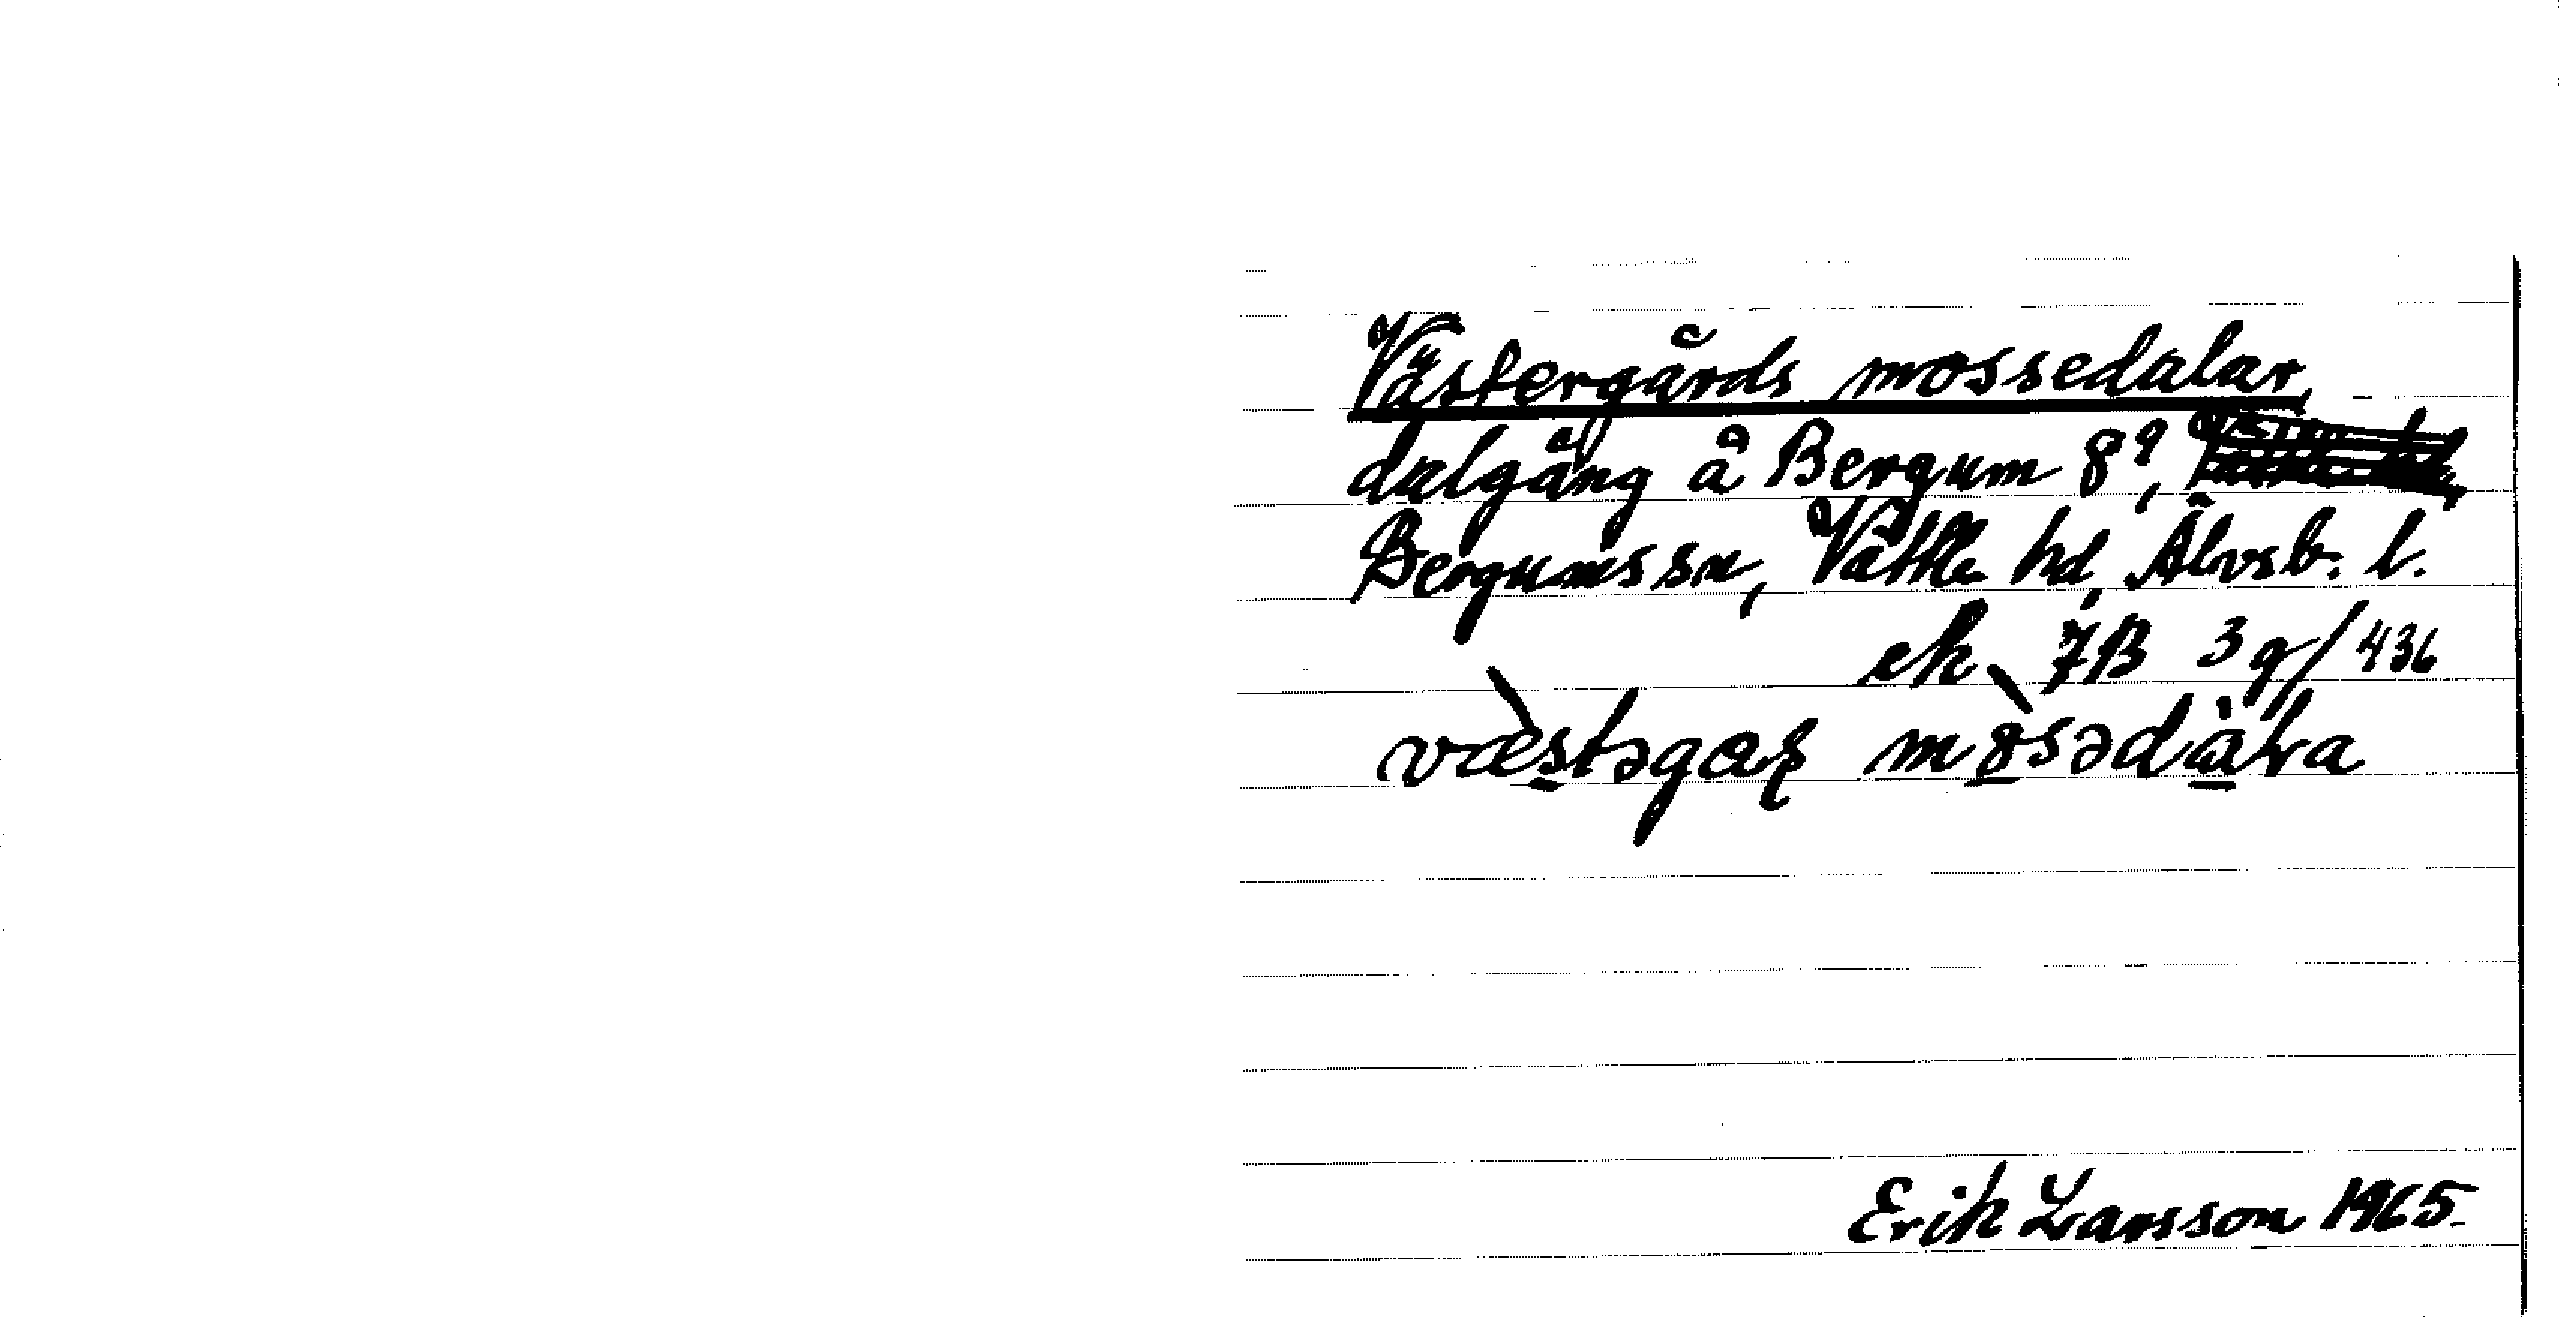 Västergårds mossedalar,
dalgång å Bergum 8⁹,
Bergums sn, Vättle hd, Älvsb. l.
ek 7B 3g/436
mòsədàɫra
Erik Larsson 1965.